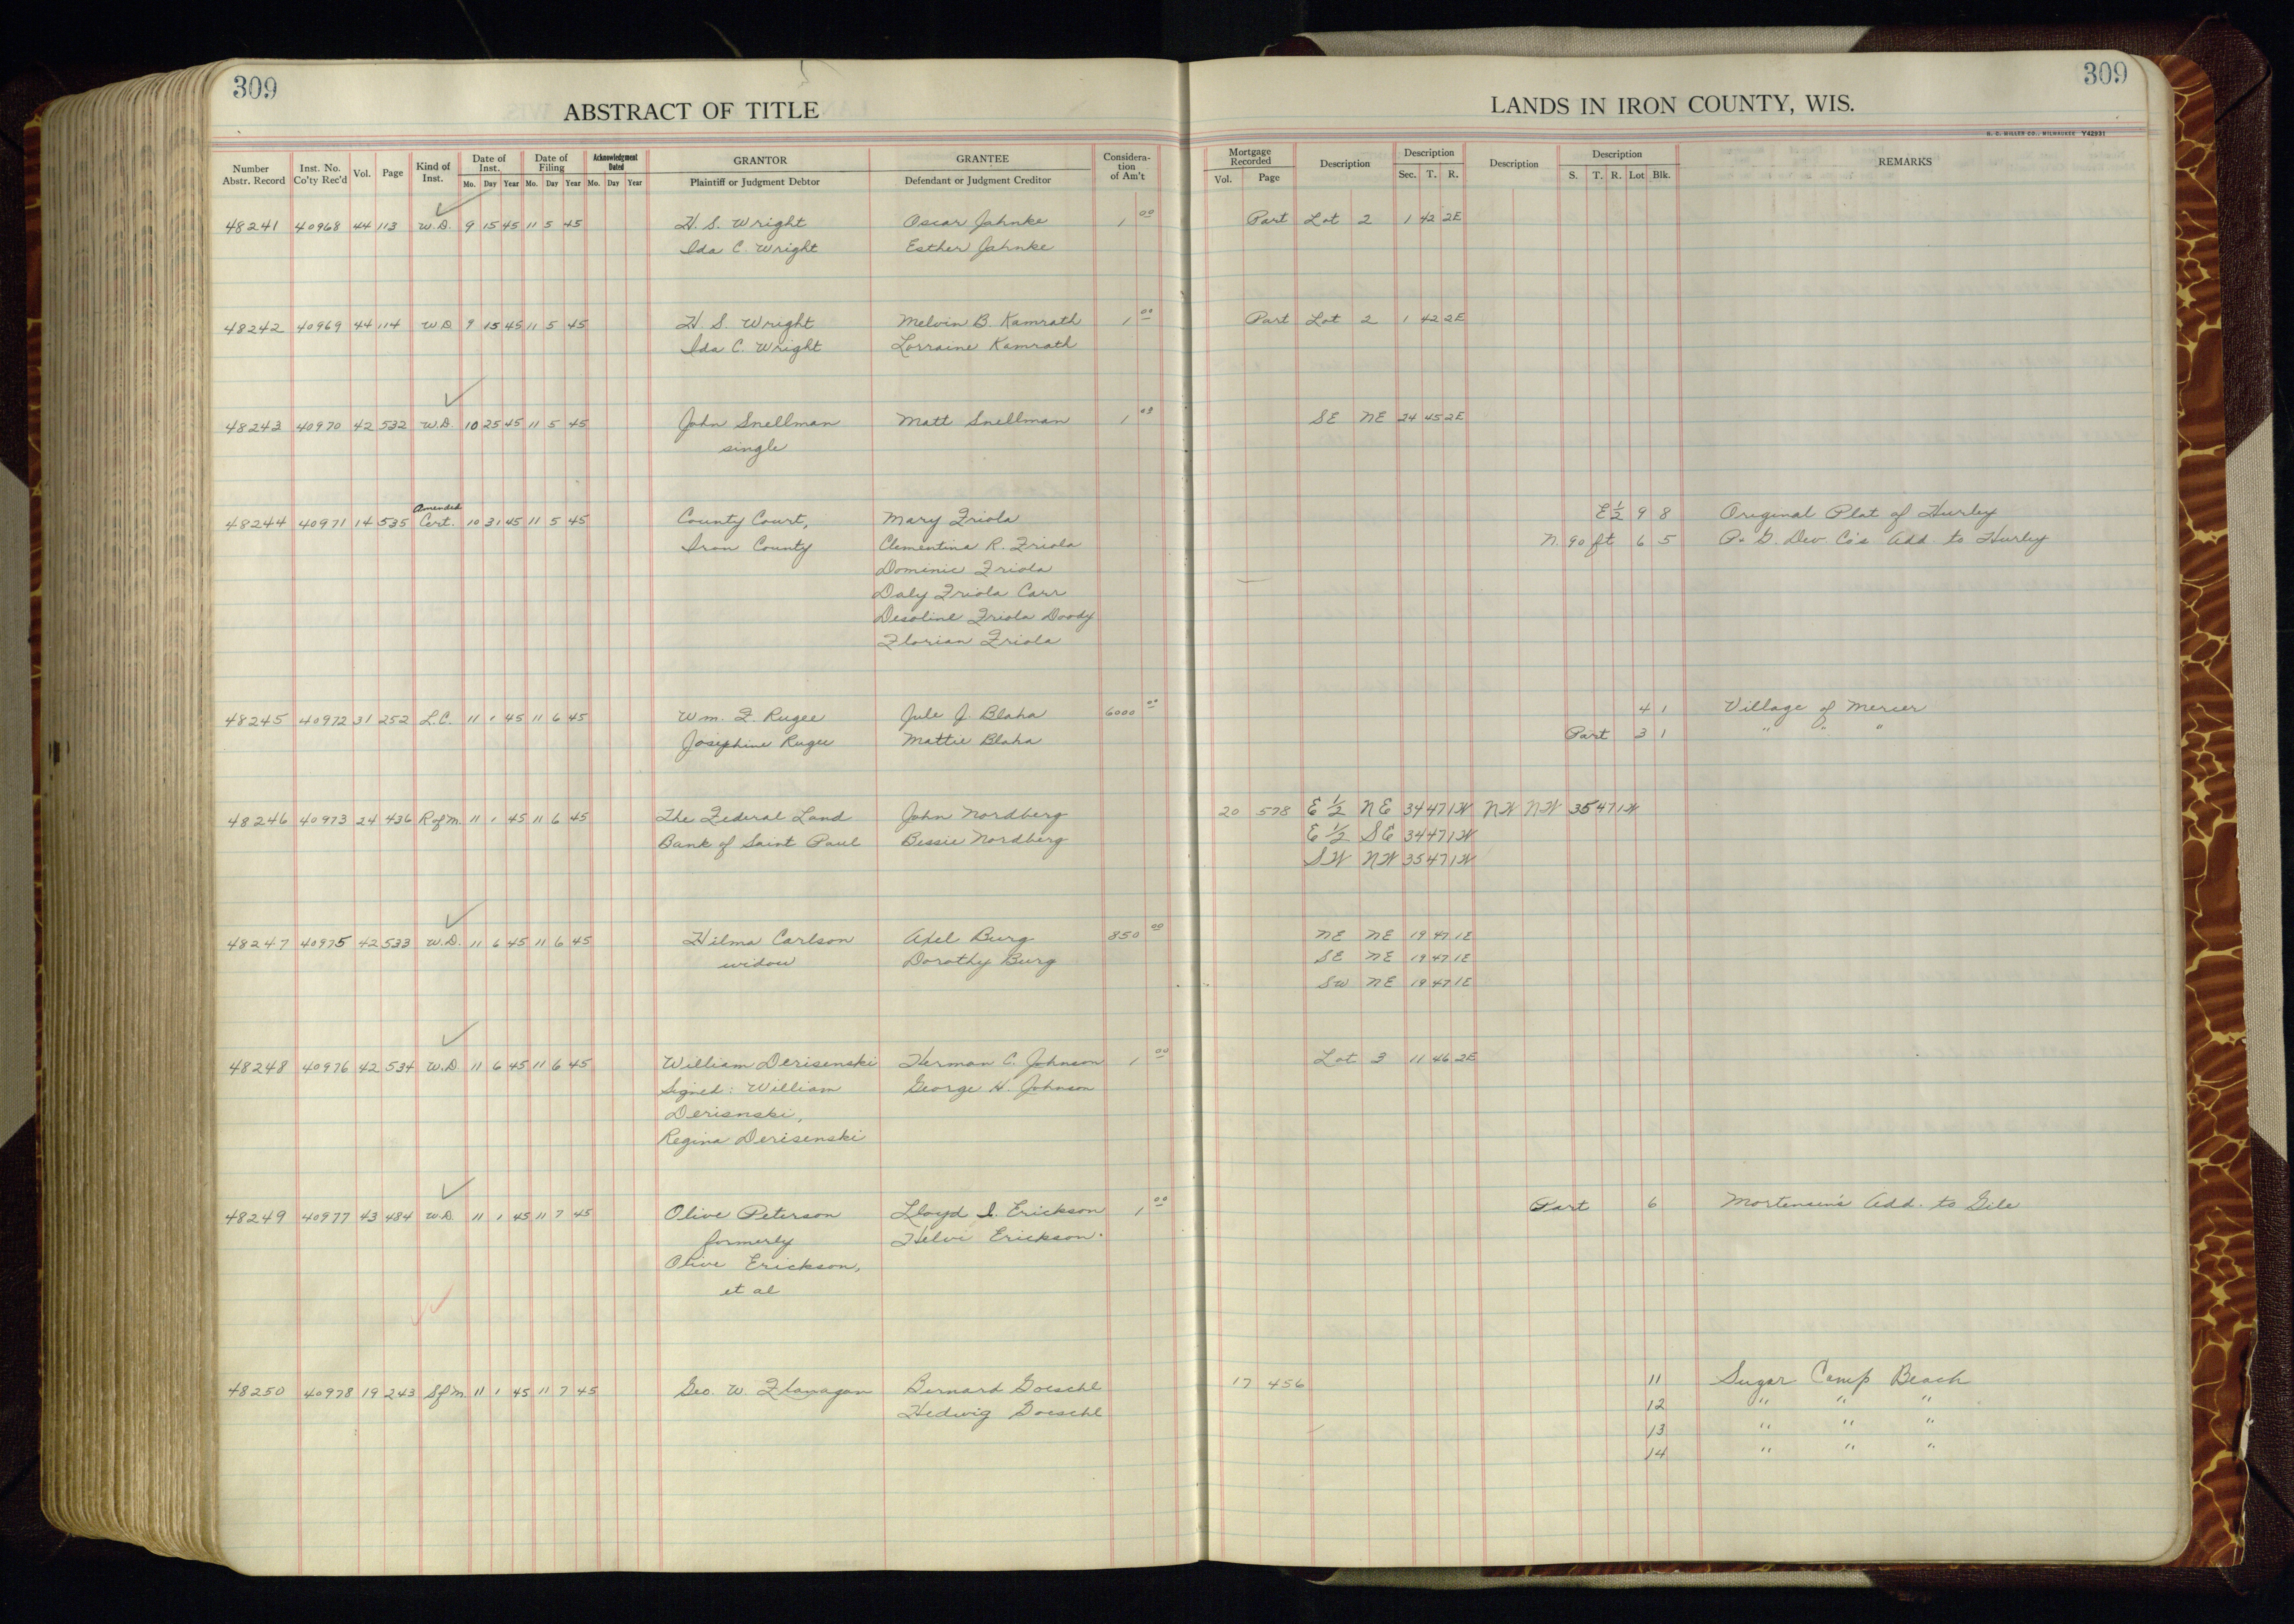 309
309
ABSTRACT OF TITLE
LANDS IN IRON COUNTY, WIS.
H. C. MILLER CO., MILWAUKEE Y42931
Number Abstr. Record Inst. No. Co'ty Rec'd Vol. Page Kind of Inst. Date of Inst. Mo. Day Year Date of Filing Mo. Day Year Acknowledgment Dated Mo. Day Year GRANTOR Plaintiff or Judgment Debtor GRANTEE Defendant or Judgment Creditor Considera-tion of Am't Mortgage Recorded Vol. Page Description Description Sec. T. R. Description Description S. T. R. Lot Blk. REMARKS
48241 40968 44 113 W.D. 9 15 45 11 5 45 H. S. Wright Oscar Jahnke 1 00 Part Lot 2 1 42 2E
Ida C. Wright Esther Jahnke
48242 40969 44 114 W.D 9 15 45 11 5 45 H S. Wright Melvin B. Kamrath 1 00 Part Lot 2 1 42 2E
Ida C. Wright Lorraine Kamrath
48243 40970 42 532 W.D. 10 25 45 11 5 45 John Snellman Matt Snellman 1 SE NE 24 45 2E
single
Amended
48244 40971 14 535 Cert. 10 31 45 11 5 45 County Court, Mary Friola E 1/2 9 8 Original Plat of Hurley
Iron County Clementina R. Friola N. 90 ft 6 5 P. & G. Dev Co's Add to Hurley
Dominic Friola
Daly Friola Carr
Desoline Friola Doody
Florian Friola
48245 40972 31 252 L.C. 11 1 45 11 6 45 Wm. F. Rugee Jule J. Blaha 6000 00 4 1 Village of Mercer
Josephine Rugee Mattie Blaha Part 3 1 " " "
48246 40973 24 436 R of M 11 1 45 11 6 45 The Federal Land John Nordberg 20 578 E 1/2 NE 34 47 1W NW NW 35 47 1W
Bank of Saint Paul Bessie Nordberg E 1/2 SE 34 47 1W
SW NW 35 47 1W
48247 40975 42 533 W.D. 11 6 45 11 6 45 Hilma Carlson Axel Burg 850 00 NE NE 19 47 1E
widow Dorothy Burg SE NE 19 47 1E
SW NE 19 47 1E
48248 40976 42 534 W.D 11 6 45 11 6 45 William Derisenski Herman C. Johnson 1 00 Lot 3 11 46 2E
Signed: William George H. Johnson
Derisnski,
Regina Derisenski
48249 40977 43 484 W.D. 11 1 45 11 7 45 Olive Peterson Lloyd I. Erickson 1 00 Part 6 Mortensen's Add. to Gile
formerly Helvi Erickson
Olive Erickson,
et al
48250 40978 19 243 S of M 11 1 45 11 7 45 Geo. W. Flanagan Bernard Goeschl 17 456 11 Sugar Camp Beach
Hedwig Goeschl 12 " " "
13 " " "
14 " " "